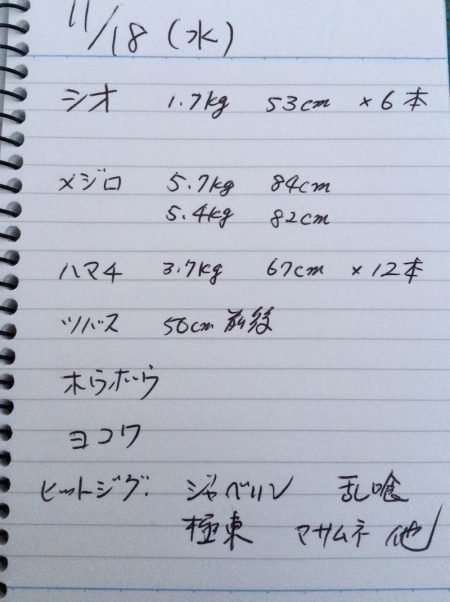 11/18 (水)
シオ 1.7kg 53cm ×6本
メジロ 5.7kg 84cm
5.4kg 82cm
ハマチ 3.7kg 67cm ×12本
ツバス 50cm 前後
ホウボウ
ヨコワ
ヒットジグ. ジャベリン 乱喰
極東 マサムネ 他